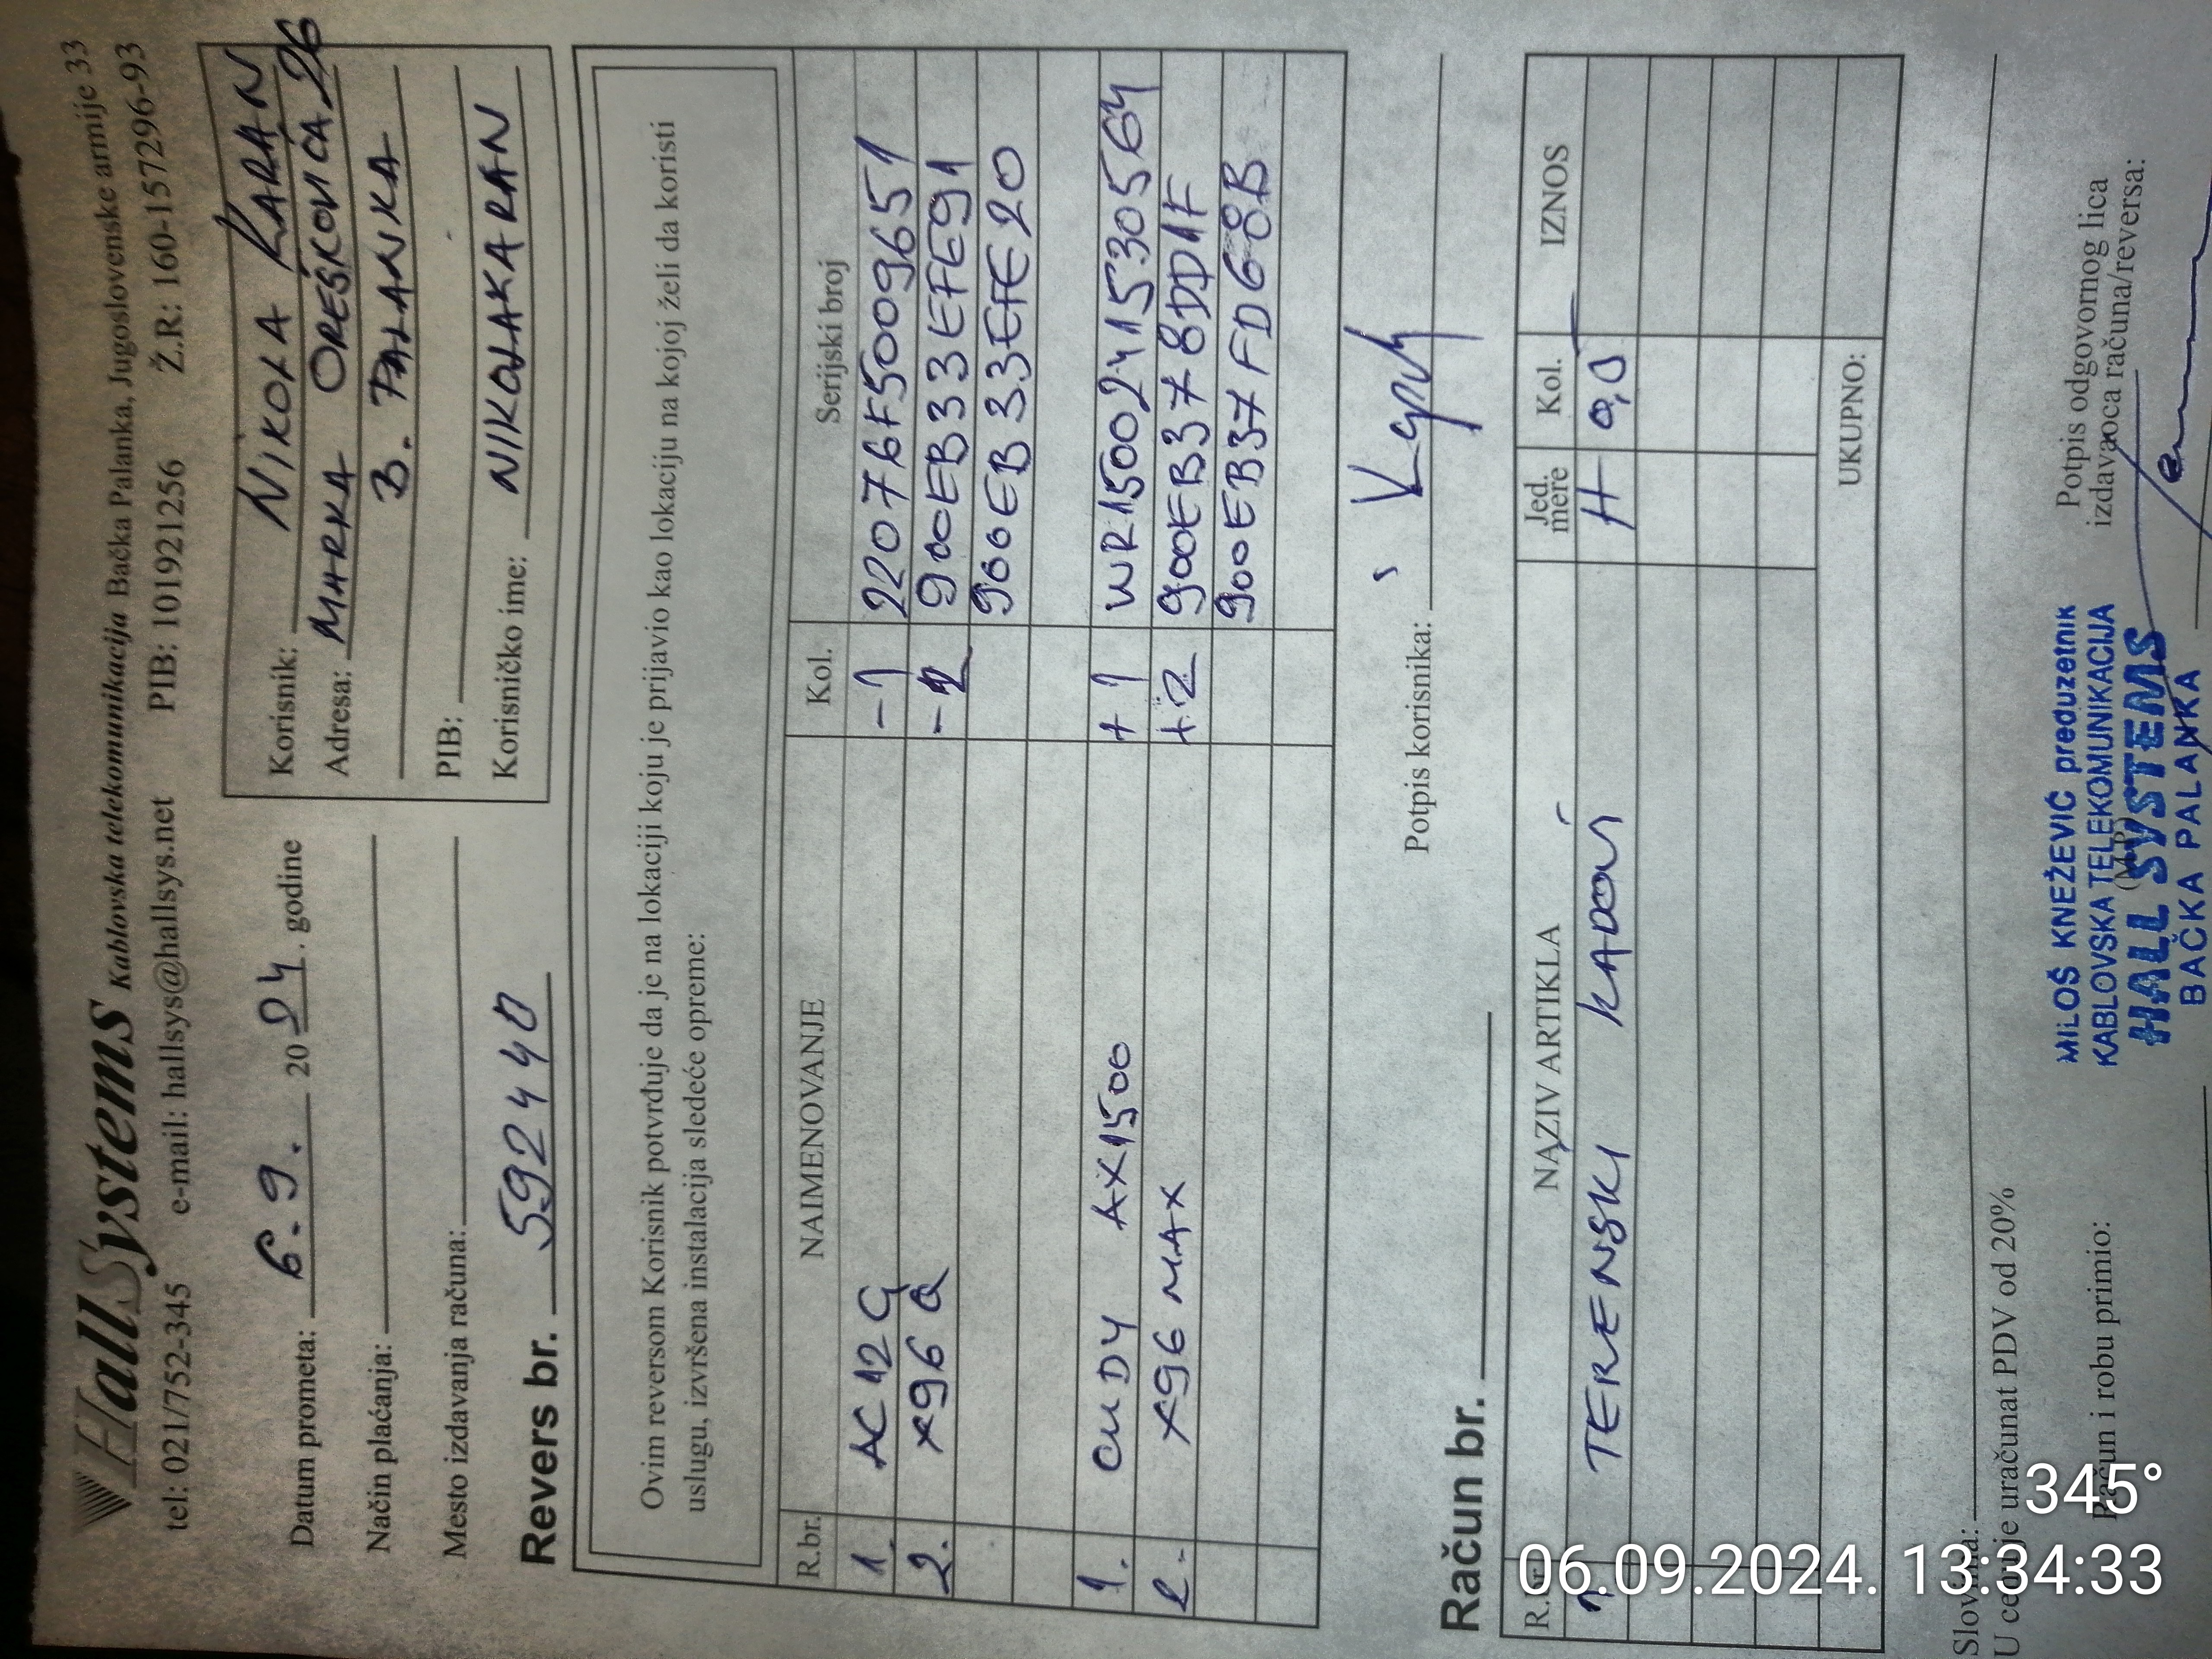 HallSystems Kablovska telekomunikacija Bačka Palanka, Jugoslovenske armije 33
tel: 021/752-345 e-mail: hallsys@hallsys.net PIB: 101921256 Ž.R: 160-157296-93
Datum prometa: 6.9. 2024. godine
Način plaćanja:
Mesto izdavanja računa:
Revers br. 592440
Korisnik: NIKOLA KARAN
Adresa: MARKA OREŠKOVIĆA 26
B. PALANKA
PIB:
Korisničko ime: NIKOLAKARAN
Ovim reversom Korisnik potvrđuje da je na lokaciji koju je prijavio kao lokaciju na kojoj želi da koristi
uslugu, izvršena instalacija sledeće opreme:
R.br. NAIMENOVANJE Kol. Serijski broj
1. AC12G -1 22076F5009651
2. X96Q -2 900EB33EFE91
900EB33EFE20
1. CUDY AX1500 +1 WR1500241530564
2. X96 MAX +2 900EB378DD1F
900EB37FD68B
Potpis korisnika:
Račun br.
R.br. NAZIV ARTIKLA Jed. mere Kol. IZNOS
1 TERENSKI H 0,5
UKUPNO:
Slovima:
U cenu je uračunat PDV od 20%
Račun i robu primio:
(M.P.)
MILOŠ KNEŽEVIĆ preduzetnik
KABLOVSKA TELEKOMUNIKACIJA
HALL SYSTEMS
BAČKA PALANKA
Potpis odgovornog lica
izdavaoca računa/reversa:
345°
06.09.2024. 13:34:33